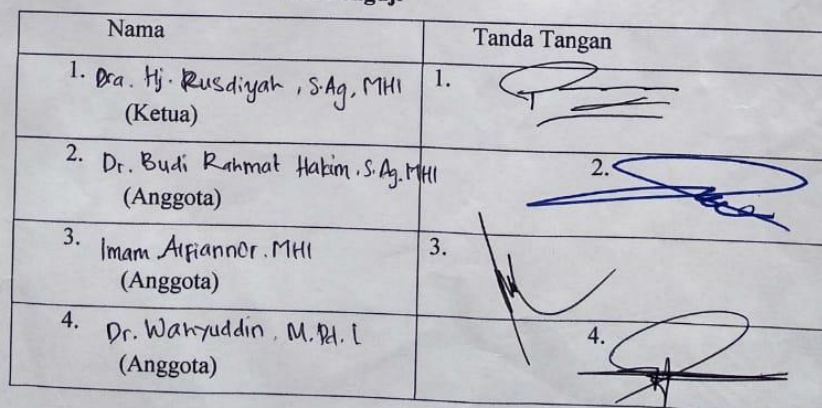 Nama Tanda Tangan
1. Dra. Hj. Rusdiyah, S.Ag, MHI 1.
(Ketua)
2. Dr. Budi Rahmat Hakim, S.Ag. MHI 2.
(Anggota)
3. Imam Alfiannor. MHI 3.
(Anggota)
4. Dr. Wahyuddin, M.Pd.I 4.
(Anggota)